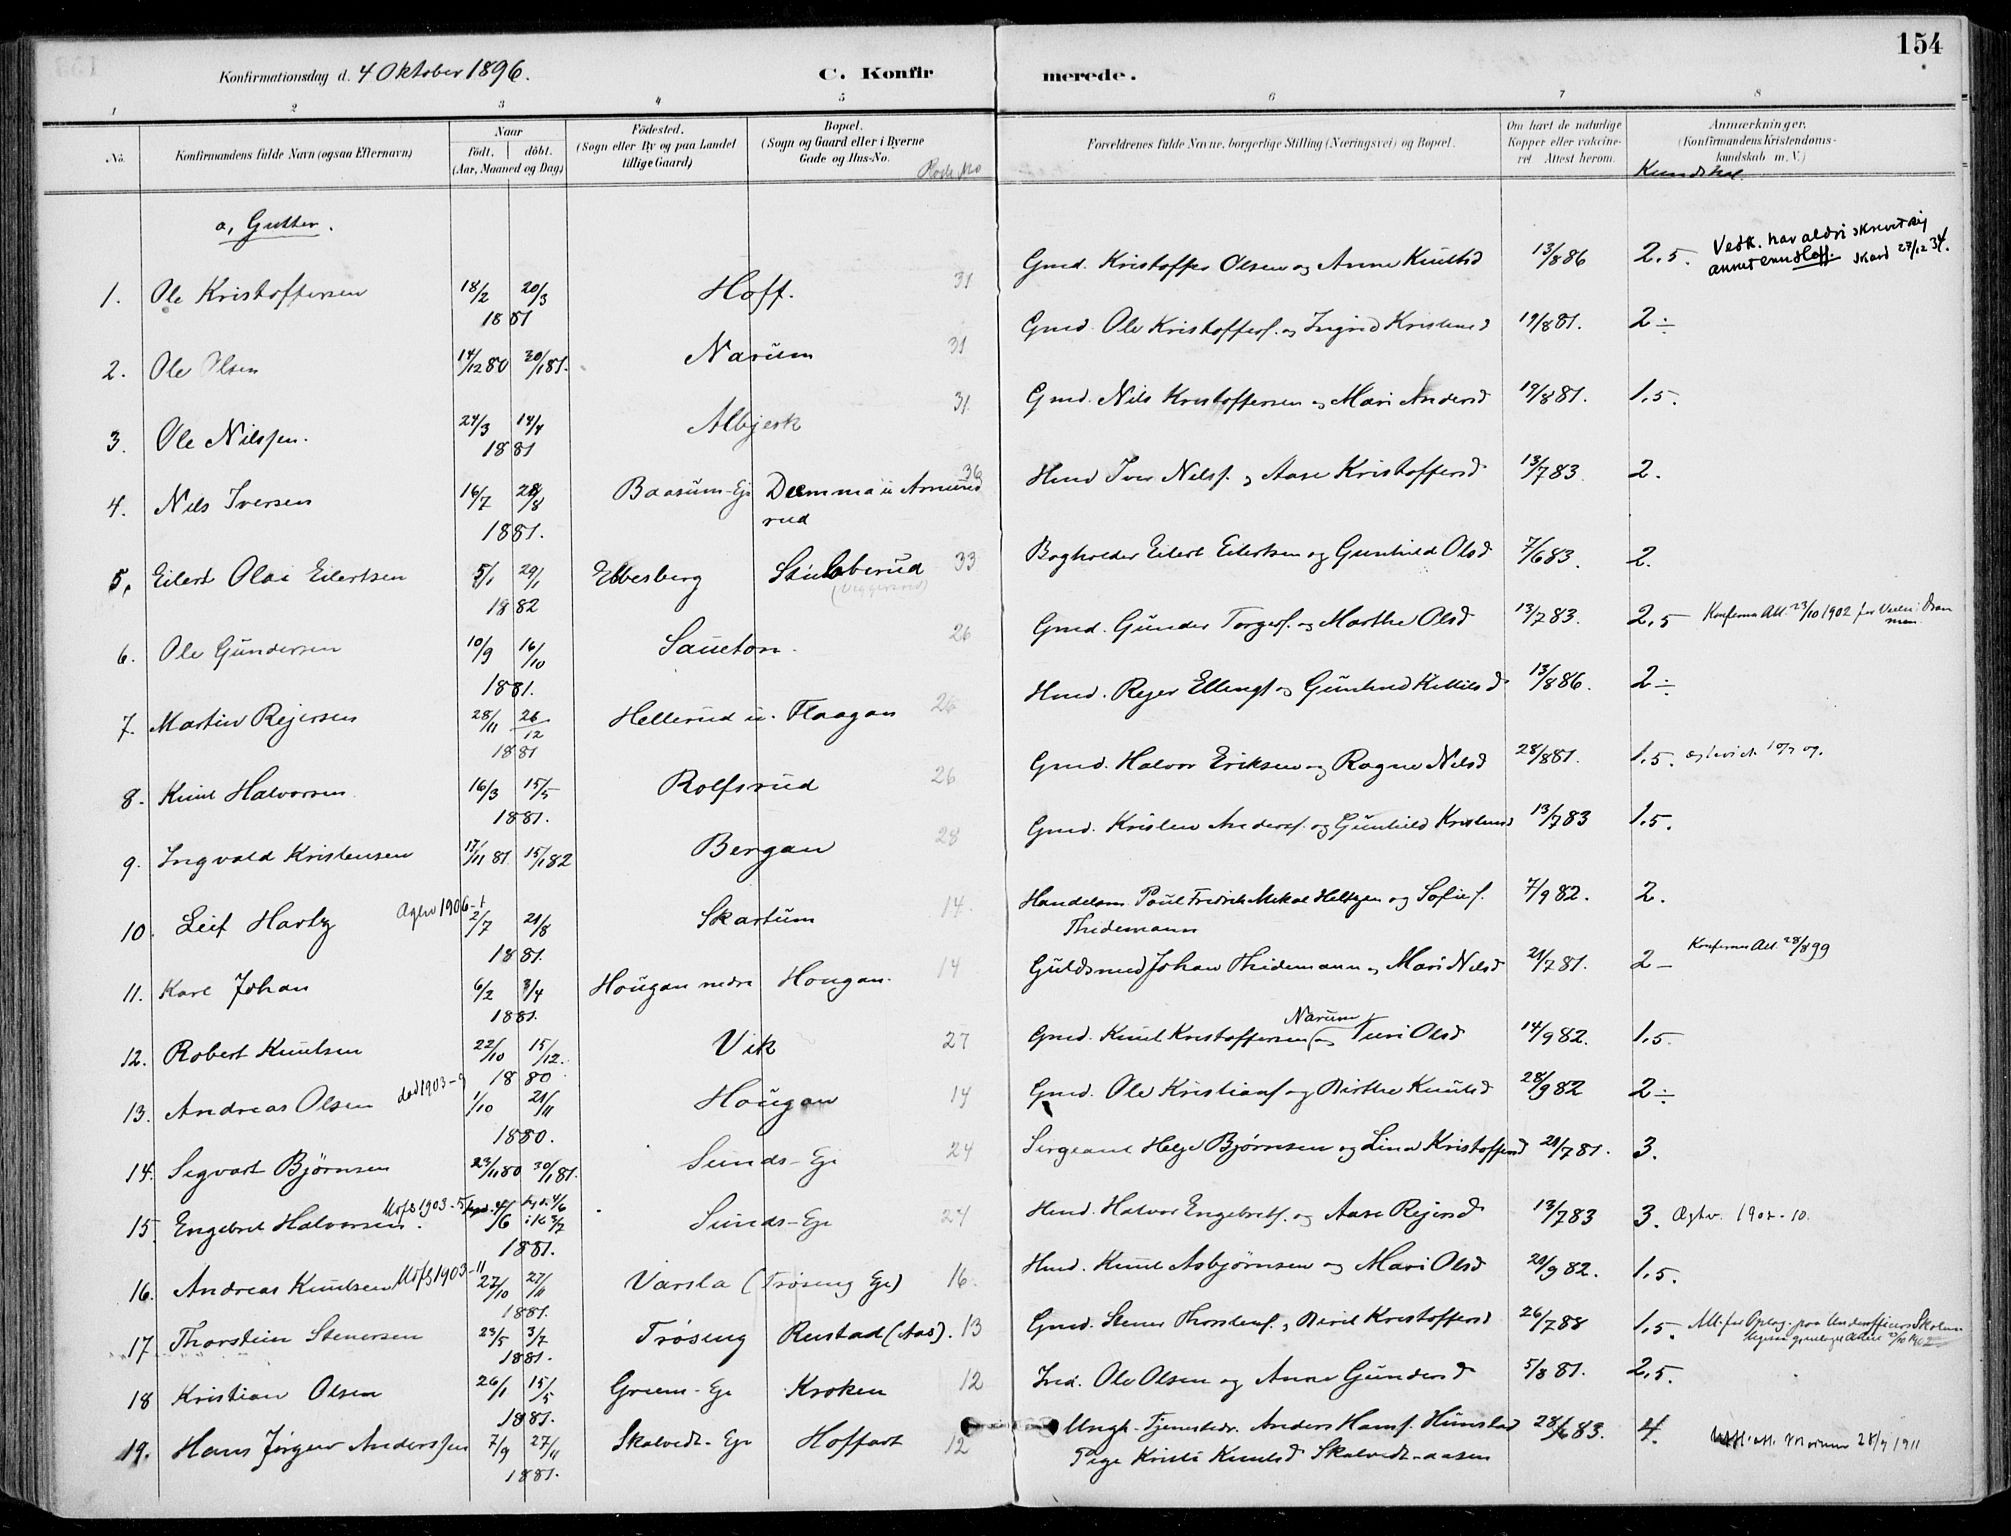 154
Konfirmationsdag d. 4 Oktober 1896.
C. Konfir
merede.
1 2 3 4 5 6 7 8
No.
Konfirmandens fulde Navn (ogsaa Efternavn)
Naar
født. døbt.
(Aar, Maaned og Dag)
Fødested.
(Sogn eller By og paa Landet
tillige Gaard)
Bopæl.
(Sogn og Gaard eller i Byerne
Gade og Hus-No.
Forældrenes fulde Navne, borgerlige Stilling (Næringsvei) og Bopæl.
Om havt de naturlige
Kopper eller vaccine-
ret Attest herom.
Anmærkninger.
(Konfirmandens Kristendoms-
kundskab m. V.)
a, Gutter.
1. Ole Kristoffersen 18/2 20/3 Hoff. 31 Gmd. Kristoffer Olsen og Anne Knutsd 13/8 86 2,5. Vedk. har aldri skrevet sig
1881 annet enn Hoff. 27/12 34.
2. Ole Olsen 14/12 80 30/1 81. Narum 31 Gmd. Ole Kristoffers. og Ingrid Kristensd 19/8 81. 2÷
3. Ole Nilssen. 24/3 14/4 Albjerk 31 Gmd. Nils Kristoffersen og Mari Andersd 19/8 81. 1,5.
1881
4. Nils Iversen 16/7 28/8 Baasum-Eje Demma u Amund 36 Hmd Iver Nilss. og Aase Kristoffersd 13/7 83. 2.
1881. rud
5. Eilert Olai Eilertsen 5/1 29/1 Ebbesberg Stubberud 33 Bogholder Eilert Eilertsen og Gunhild Olsd 7/6 83. 2.
1882
6. Ole Gundersen 10/9 16/10 Saueton. 26 Gmd. Gunder Torgers. og Marthe Olsd 13/7 83. 2,5 Konferm Att. 23/10 1902 for Dram
1881. men
7. Martin Rejersen 28/11 26/12 Hellerud u. Flaagan 26 Hmd. Rejer Ellengs. og Gunhild Kittilsd 13/8 86. 2÷
1881
8. Knut Halvorsen 16/3 15/5 Rolfsrud 26 Gmd. Halvor Eriksen og Ragne Nilsd 28/8 81. 1,5.
1881.
9. Ingvald Kristensen 17/11 81 15/1 82 Bergan 28 Gmd. Kristen Anders. og Gunhild Kristensd 13/7 83 1,5.
10. Leif Harby 1906-1 2/7 21/8 Skartum 14. Handelsm. Paul Fredrik Mikal og Sofie f. 7/9 82. 2.
1881. Thidemann
11. Karl Johan 6/2 3/4 Hougan nedre Hougan. 14 Guldsmed Johan Thidemann og Mari Nilsd 21/7 81. 2- Konferm Att. 28/8 99
1881.
12. Robert Knutsen 22/10 15/12. Vik 27 Gmd. Knut Kristoffersen Narum og Turi Olsd 14/9 82. 1,5.
1880
13. Andreas Olsen død 1903-9 1/10 21/11 Hougan 14 Gmd. Ole Kristians. og Birthe Knutsd 28/9 82 2÷
1880.
14. Segvart Björnsen 23/11 80 30/1 81. Sunds-Eje 24 Sergeant Helge Bjørnsen og Lina Kristoffersd 21/7 81. 3.
15. Engebret Halvorsen. 1903-5 4/6 Sunds-Eje 24 Hmd. Halvor Engebrets. og Aase Rejersd 13/7 83 3. Ægtev. 1902-10.
1881.
16. Andreas Knutsen 1903-11 27/10 27/11 Varsla (Trøseng Eje) 16. Hmd. Knut Asbjørnsen og Mari Olsd 21/9 82. 1,5.
1881.
17 Thorstein Stenersen 23/5 3/7 Trøseng Rustad (Aas). 13 Gmd. Stener Thorstens. og Berit Kristoffersd 26/7 88 1,5. Att. for Optag. paa Underofficers Skolen
1881.
18 Kristian Olsen 26/1 15/5 Gruem-Eje Kroken 12 Ind. Ole Olsen og Anne Gundersd 5/8 81. 2,5.
1881.
19. Hans Jørgen Anderssen 7/9 27/11 Skalvedt-Eje Hoffart 12 Ungk. Tjenestedr. Anders Hanss. Hunstad 28/6 83. 4. 28/9 1911
1881. Pige Kristi Knutsd Skalvedt-aasen